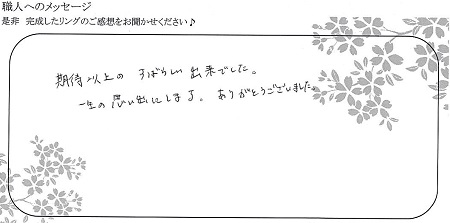 職人へのメッセージ
是非 完成したリングのご感想をお聞かせください♪
期待以上の すばらしい出来でした。
一生の思い出にします。ありがとうございました。